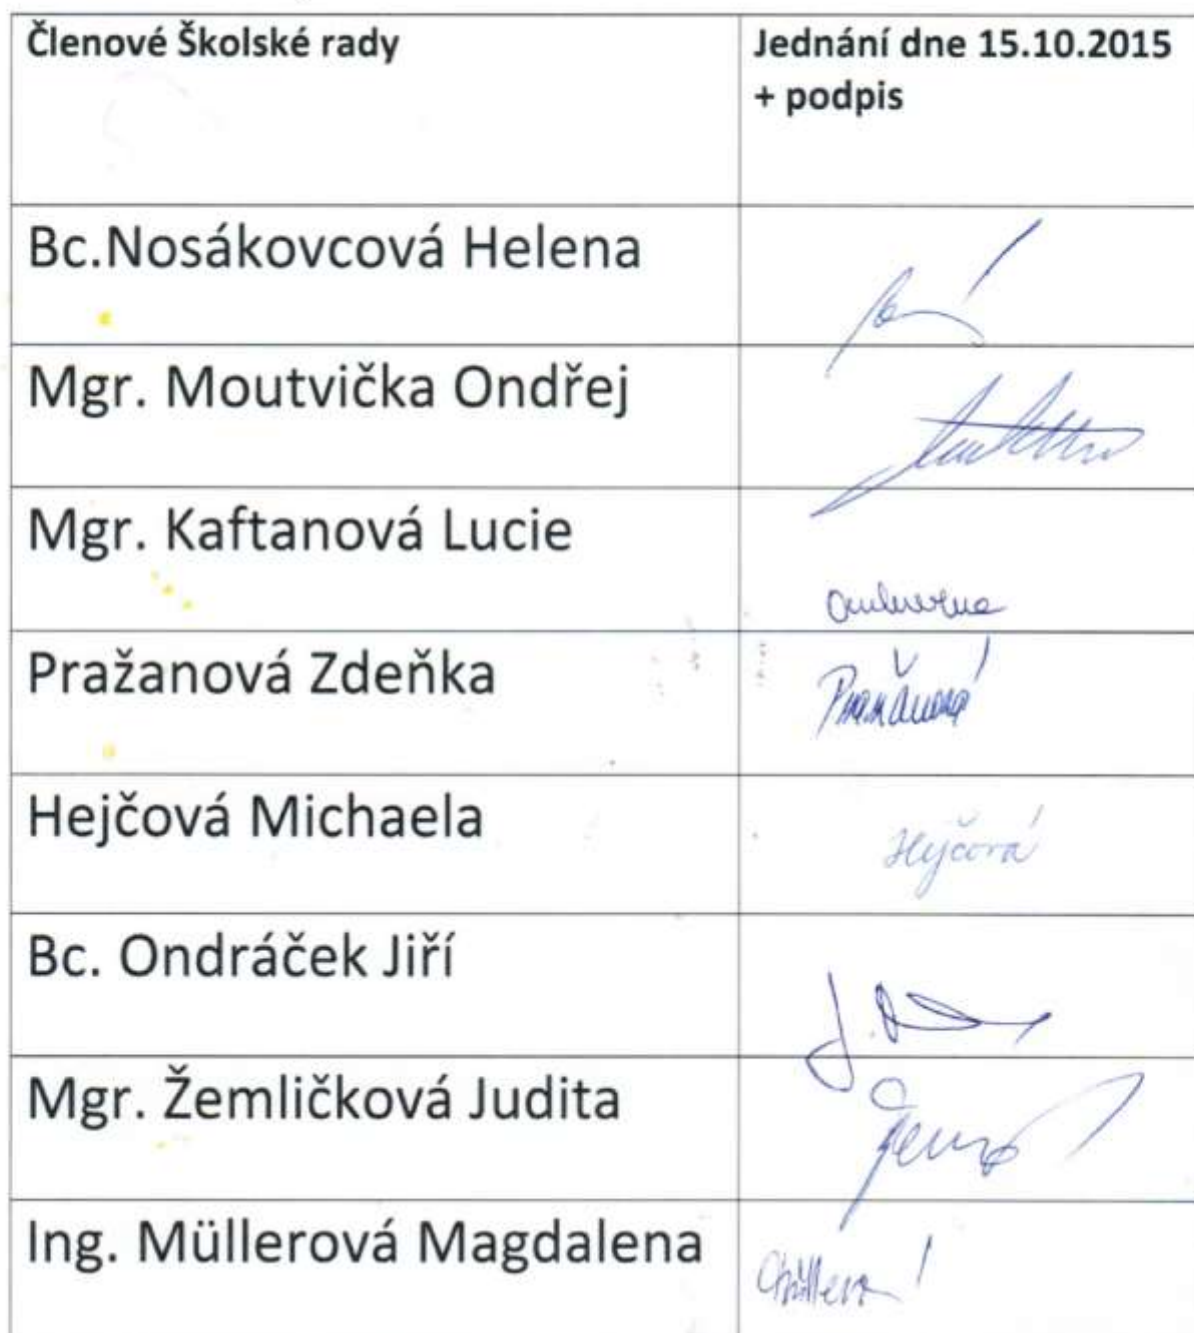 Členové Školské rady
Jednání dne 15.10.2015
+ podpis
Bc.Nosákovcová Helena
Mgr. Moutvička Ondřej
Mgr. Kaftanová Lucie
Pražanová Zdeňka
Pražanová
Hejčová Michaela
Hejčová
Bc. Ondráček Jiří
Mgr. Žemličková Judita
Ing. Müllerová Magdalena